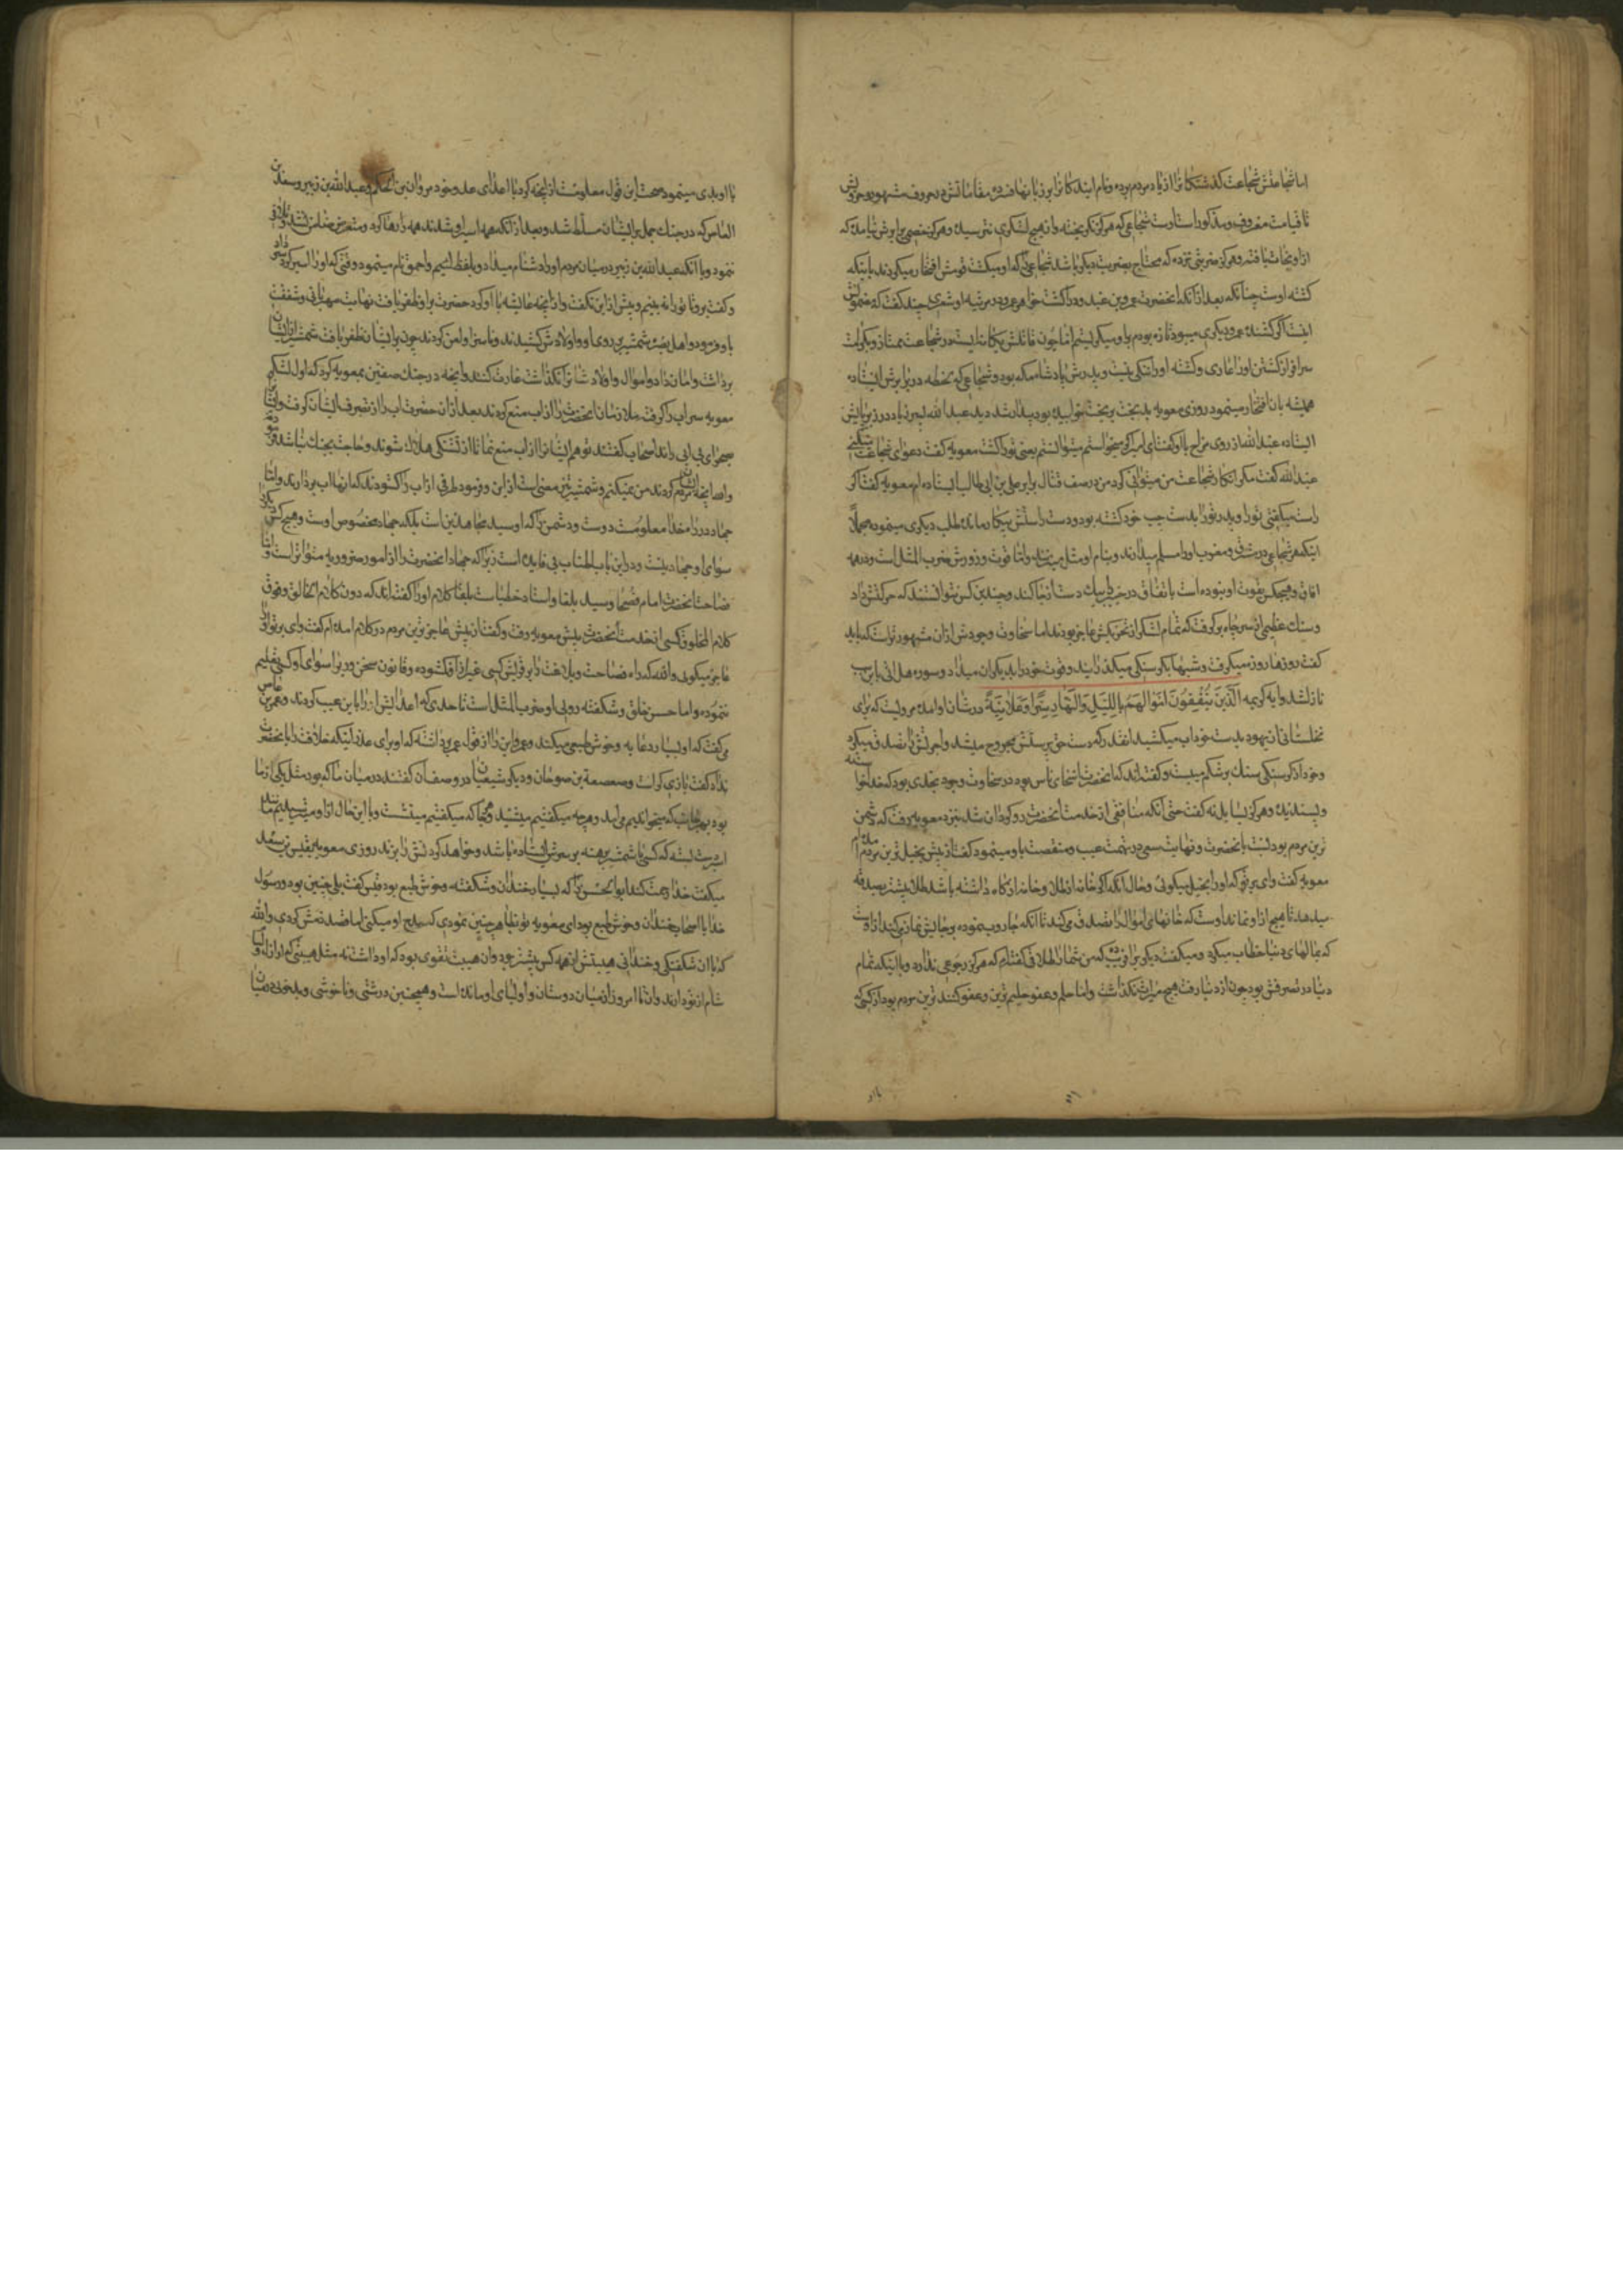 اما شجاعتش شجاعت گذشتگان را از یاد مردم برده و نام آیندگان را بر زبانها فسرده مقاماتش در حروب مشهور و حروبش
تا قیامت معروف و مذکور است اوست شجاعی که هرگز نگریخته و از هیچ لشکری نترسیده و هرگز خصمی برابرش نیامده که
ازو نجات یافته و هرگز ضربتی نزده که محتاج بضربت دیگر باشد شجاعی را که او میکشت قومش افتخار میکردند باینکه
کشته اوست چنانکه بعد از آنکه آنحضرت عمرو بن عبدود را کشت خواهر عمرو در مرثیه او شعری چند گفت که مضمونش
اینست اگر کشنده عمرو دیگری میبود تا زنده بودم باو میگریستم اما چون قاتلش یگانه ایست در شجاعت ممتاز و بکرامت
سرافراز کشتن او را عاری و کشته او را ننگی نیست و پدرش پادشاه مکه بود و شجاعی که یک لحظه در برابرش ایستاده
همیشه بآن افتخار مینمود روزی معویه بدبخت بر تخت خوابیده بود بیدار شد دید عبدالله زبیر زیاد در زیر پایش
ایستاده عبدالله از روی مزاح باو گفت ای امیر اگر میخواستم میتوانستم یعنی تو را کشت معویه گفت دعوای شجاعت میکنی
عبدالله گفت مگر انکار شجاعت من میتوانی کرد من در صف قتال برابر علی بن ابی طالب ایستاده ام معویه گفت اگر
راست میگفتی تو را و پدر تو را بدست چپ خود کشته بود و دست راستش بیکار مانده طلب دیگری مینمود مجملا
اینکه هر شجاعی در مشرق و مغرب او را مسلم میدارند و بنام او مثل میزنند و اما قوت و زورش ضرب المثل است و در همه
آفاق و هیچکس بقوت او نبوده است باتفاق در خیبر را بیک دست از جا کند و چندین کس نتوانستند که حرکتش داد
و سنگ عظیمی از سر چاه برگرفت که تمام لشکر از تحریکش عاجز بودند اما سخاوت و جودش از آن مشهورتر است که باید
گفت روزها روزه میگرفت و شبها بگرسنگی میگذرانید و قوت خود را بدیگران میداد و سوره هل اتی باین سبب
نازل شد و آیه کریمه الذین ینفقون اموالهم باللیل والنهار سرا وعلانیة در شان او آمده مرویست که برای
نخلستانی از یهود بدست خود آب میکشید آنقدر که دست حق پرستش مجروح میشد و اجرتش را تصدق میکرد
و خود از گرسنگی سنگ بر شکم میبست و گفته اند که آنحضرت اسخای ناس بود و در سخاوت و جود بحدی بود که خدا خواسته
و پسندیده و هرگز بسایل نه نگفت حتی آنکه منافقی از خدمت آنحضرت روگردان شد نزد معویه رفت که دشمن
ترین مردم بود نسبت بآنحضرت و نهایت سعی در تهمت عیب و منقصت باو مینمود گفت از پیش بخیل ترین مردم آمده ام
معویه گفت وای بر تو که او را بخیل میگوئی و حال آنکه اگر خانه از طلا و خانه از کاه داشته باشد طلا را پیشتر بصدقه
میدهد تا هیچ از او نماند اوست که خانهای اموال را تصدق میکند تا آنکه جاروب نموده و جایش نماز میکند از اوست
که بمالهای دنیا خطاب میکرد و میگفت دیگری را فریب ده که من شما را طلاقی گفته ام که هرگز رجوعی ندارد و با اینکه تمام
دنیا در تصرفش بود چون از دنیا رفت هیچ میراث نگذاشت و اما حلم و عفو حلیم ترین و عفو کننده ترین مردم بود از کسی که
با او بدی مینمود صحت این قول معلومست از آنچه کرد با اعدای عدو خود مروان بن الحکم و عبدالله بن زبیر و سعید بن
العاص که در جنگ جمل بر ایشان مسلط شد و بعد از آنکه همه اسیر او شدند همه را رها کرد و متعرض ایشان نشد و تلافی
ننمود و با آنکه عبدالله بن زبیر در میان مردم او را دشنام میداد و بلفظ لئیم و احمق نام مینمود وقتی که او را اسیر کرد
و گفت برو تا تو را نه بینم و بیش از این نگفت و از آنچه عایشه با او کرد حضرت بر او ظفر یافت نهایت مهربانی و شفقت
باو فرمود و اهل بصره شمشیر بر روی او و اولادش کشیدند و ناسزا و لعن کردند چون بر ایشان ظفر یافت شمشیر از ایشان
برداشت و امان داد و اموال و اولادشان را نگذاشت غارت کنند و آنچه در جنگ صفین بمعویه کرد که اول لشکر
معویه سر آب را گرفته ملازمان آنحضرت را از آب منع کردند بعد از آن حضرت آب را از تصرف ایشان گرفت و ایشان را
بصحرای بی آبی راند اصحاب گفتند تو هم ایشان را از آب منع نما تا از تشنگی هلاک شوند و حاجت بجنگ نباشد فرمود
والله آنچه ایشان کردند من نمیکنم و شمشیر تیز مغنی است از این و فرمود طرفی از آب را گشودند که آنها آب بردارند و اما
جهاد در راه خدا معلومست دوست و دشمن را که او سید مجاهدین است بلکه جهاد مخصوص اوست و هیچ کس دیگر را
سوای او جهاد نیست و در این باب اطناب بی فایده است زیرا که جهاد آنحضرت را از امور ضروریه متواتر است و اما
فصاحت آنحضرت امام فصحا و سید بلغا و استاد خطباست بلغا کلام او را گفته اند که دون کلام الخالق و فوق
کلام المخلوق کسی از خدمت آنحضرت پیش معویه رفت و گفت از پیش عاجزترین مردم در کلام آمده ام گفت وای بر تو او را
عاجز میگوید والله که راه فصاحت و بلاغت را بر قریش کسی غیر از او نگشوده و قانون سخنوری را سوای او کسی تعلیم
ننموده و اما حسن خلق و شکفته رویی او ضرب المثل است تا حدی که اعدایش او را باین عیب کردند و عمرو بن عاص
می گفت که او بسیار دعابه و خوش طبعی میکند و عمرو این را از قول عمر برداشته که او برای عذر اینکه خلافت را بآنحضرت
نداد گفت بازی گر است و صعصعة بن صوحان و دیگر شیعیان در وصف آن گفتند در میان ما که بود مثل یکی از ما
بود بهر جانب که میخواندیم می آمد و هر چه میگفتیم میشنید و هر جا که میگفتیم مینشست و با این حال از او میترسیدیم مانند
اسیر دست بسته که کسی با شمشیر برهنه بر سرش ایستاده باشد و خواهد گردنش را بزند روزی معویه بقیس بن سعد
میگفت خدا رحمت کند ابوالحسن را که بسیار خندان و شکفته و خوش طبع بود قیس گفت بلی چنین بود و رسول
خدا با اصحاب خندان و خوش طبع بود ای معویه تو بظاهر چنین نمودی که مدح او میکنی اما قصد ذمش کردی والله
که با آن شکفتگی و خندانی هیبتش از همه کس بیشتر بود و آن هیبت تقوی بود که او داشت نه مثل هیبتی که اراذل و لئام
شام از تو دارند و آن تا امروز از میان دوستان و اولیای او مانده است و همچنین درشتی و ناخوشی و بدخویی در میان